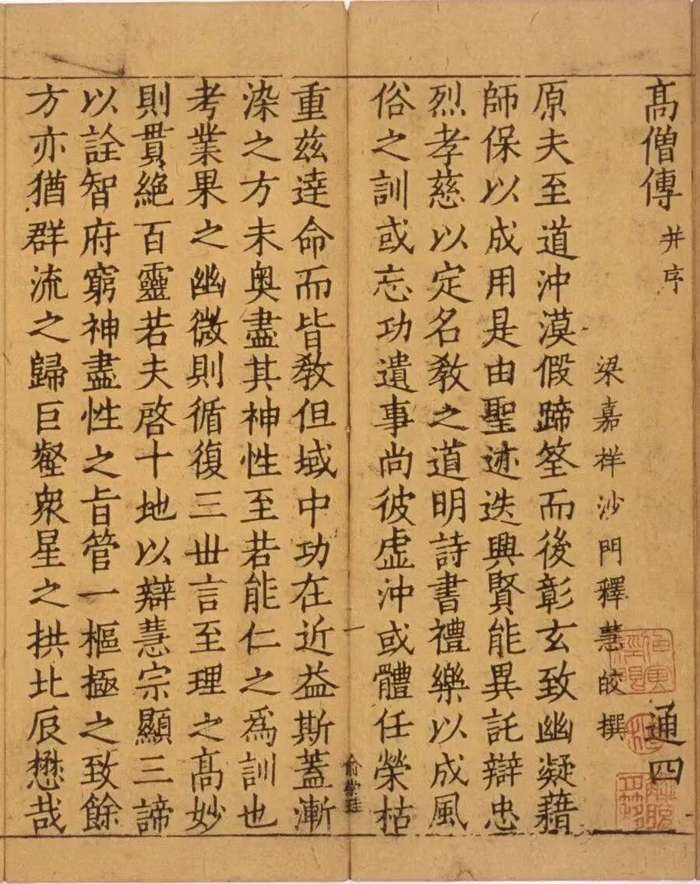 髙僧傳 并序
通四
梁嘉祥沙門釋慧皎撰
原夫至道沖漠假蹄筌而後彰玄致幽凝藉
師保以成用是由聖迹迭興賢能異託辯忠
烈孝慈以定名教之道明詩書禮樂以成風
俗之訓或忘功遺事尚彼虛沖或體任榮枯
重茲達命而皆教但域中功在近益斯蓋漸
染之方未奥盡其神性至若能仁之為訓也
考業果之幽微則循復三世言至理之髙妙
則貫絕百靈若夫啓十地以辯慧宗顯三諦
以詮智府窮神盡性之旨管一樞極之致餘
方亦猶群流之歸巨壑衆星之拱北辰懋哉